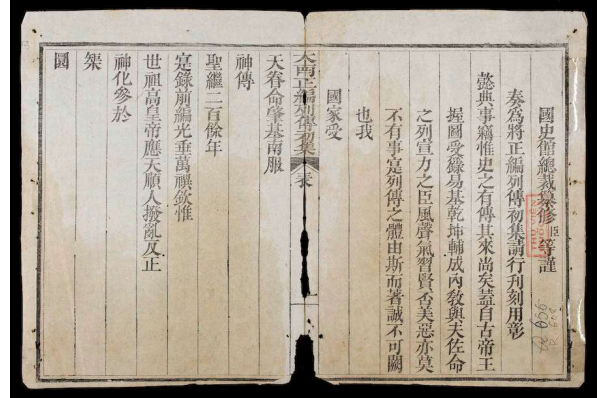 國史館總裁纂修臣等謹
奏爲將正編列傳初集請行刊刻用彰
懿典事竊惟史之有傳其來尚矣蓋自古帝王
握圖受籙易基乾坤輔成內教與夫佐命
之列宣力之臣風聲氣習賢否美惡亦莫
不有事寔列傳之體由斯而著誠不可闕
也我
國家受
大南正編列傳初集 表
天眷命肇基南服
神傳
聖繼二百餘年
寔錄前編光垂萬禩欽惟
世祖高皇帝應天順人撥亂反正
神化參於
榘
圜